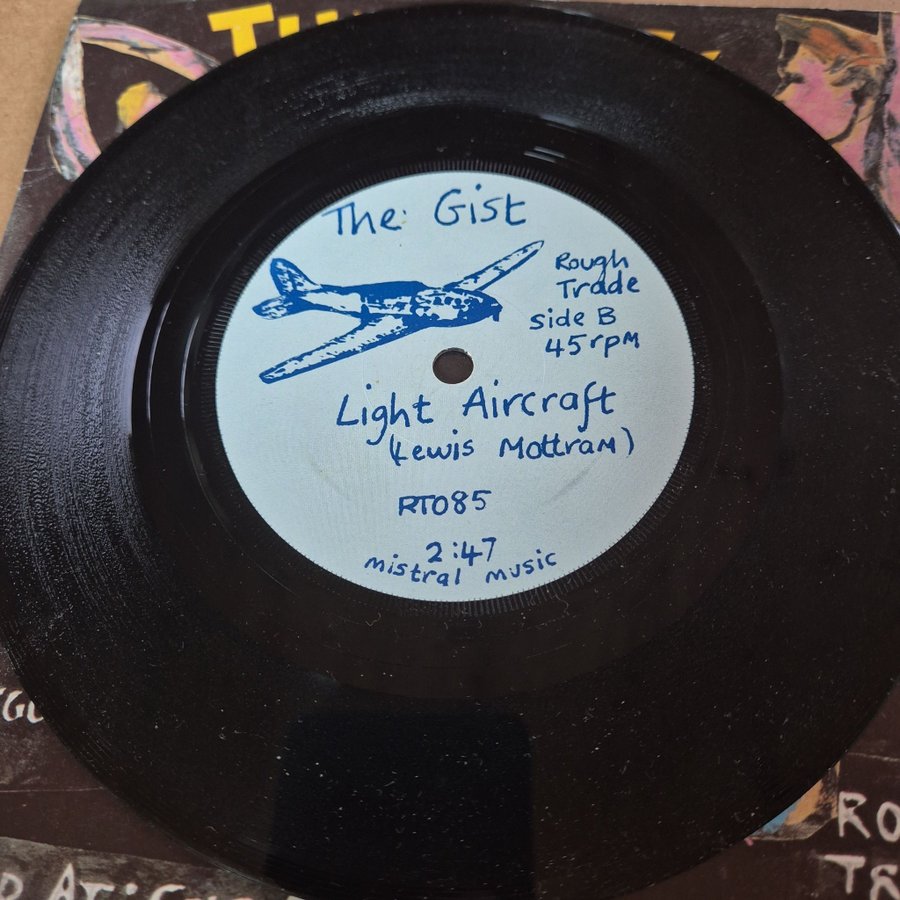 The Gist
Rough
Trade
side B
45 rpm
Light Aircraft
(Lewis Mottram)
RT085
2:47
mistral music
RO
TR